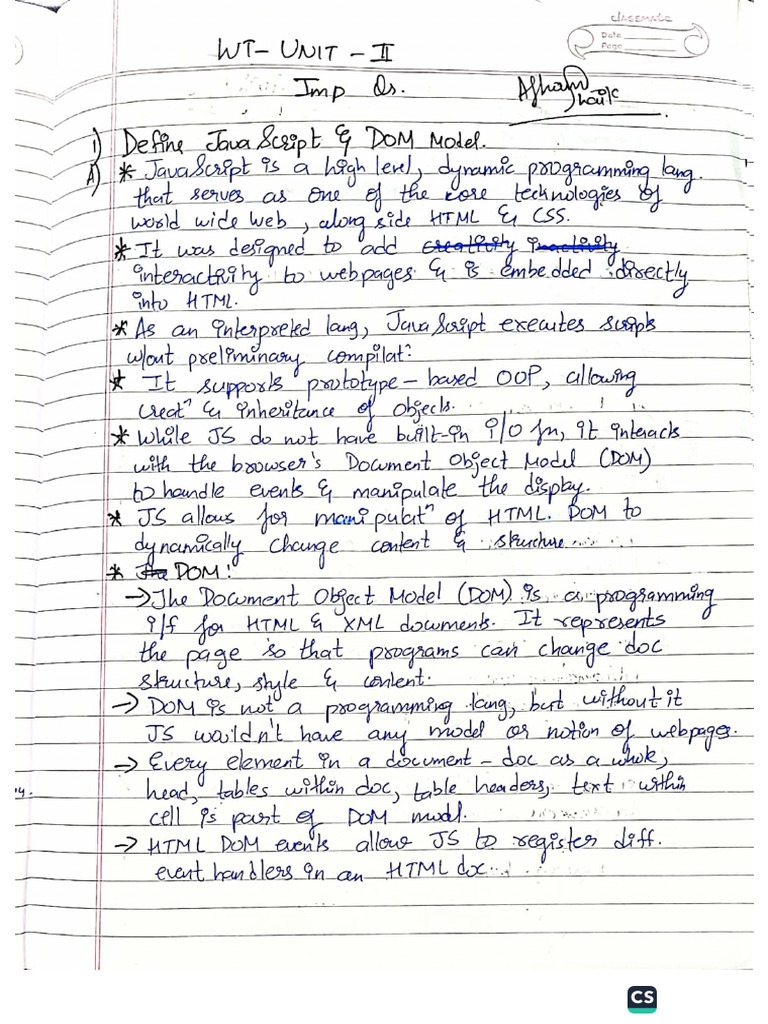 classmate
Date
Page
WT- UNIT - II
Imp Qs.
Afham Shaik
1) Define JavaScript & DOM Model.
A) * JavaScript is a high level, dynamic programming lang.
that serves as one of the core technologies of
world wide web, along side HTML & CSS.
* It was designed to add creativity inactivity
interactivity to webpages & is embedded directly
into HTML.
* As an interpreted lang, JavaScript executes scripts
w/out preliminary compilatⁿ.
* It supports prototype-based OOP, allowing
creatⁿ & inheritance of objects.
* While JS do not have built-in i/o fn, it interacts
with the browser's Document Object Model (DOM)
to handle events & manipulate the display.
* JS allows for manipulatⁿ of HTML. DOM to
dynamically change content & structure.
* The DOM:
→ The Document Object Model (DOM) is a programming
i/f for HTML & XML documents. It represents
the page so that programs can change doc
structure, style & content.
→ DOM is not a programming lang, but without it
JS wouldn't have any model or notion of webpages.
→ Every element in a document - doc as a whole,
head, tables within doc, table headers, text within
cell is part of DOM model.
→ HTML DOM events allow JS to register diff.
event handlers in an HTML doc.
CS